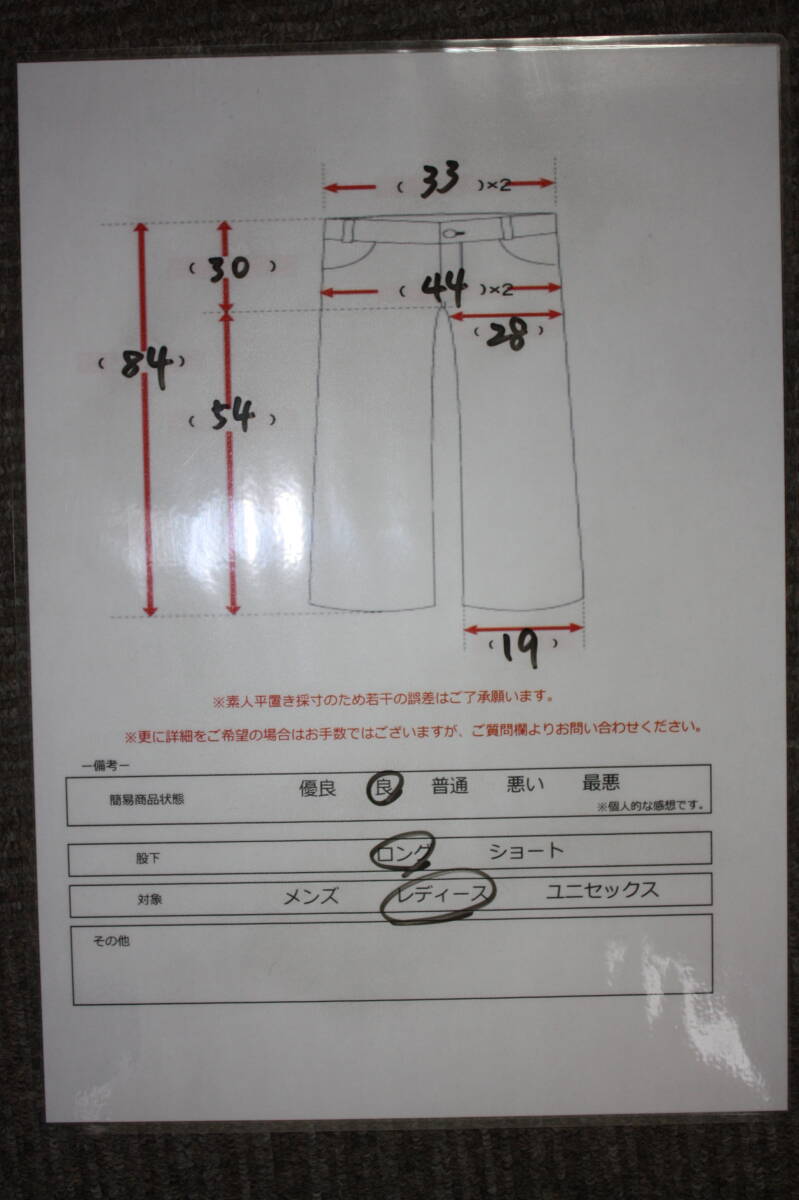 ( 33 )×2
( 30 )
( 44 )×2
( 28 )
( 84 )
( 54 )
( 19 )
※素人平置き採寸のため若干の誤差はご了承願います。
※更に詳細をご希望の場合はお手数ではございますが、ご質問欄よりお問い合わせください。
ー備考ー
簡易商品状態 優良 良 普通 悪い 最悪
※個人的な感想です。
股下 ロング ショート
対象 メンズ レディース ユニセックス
その他